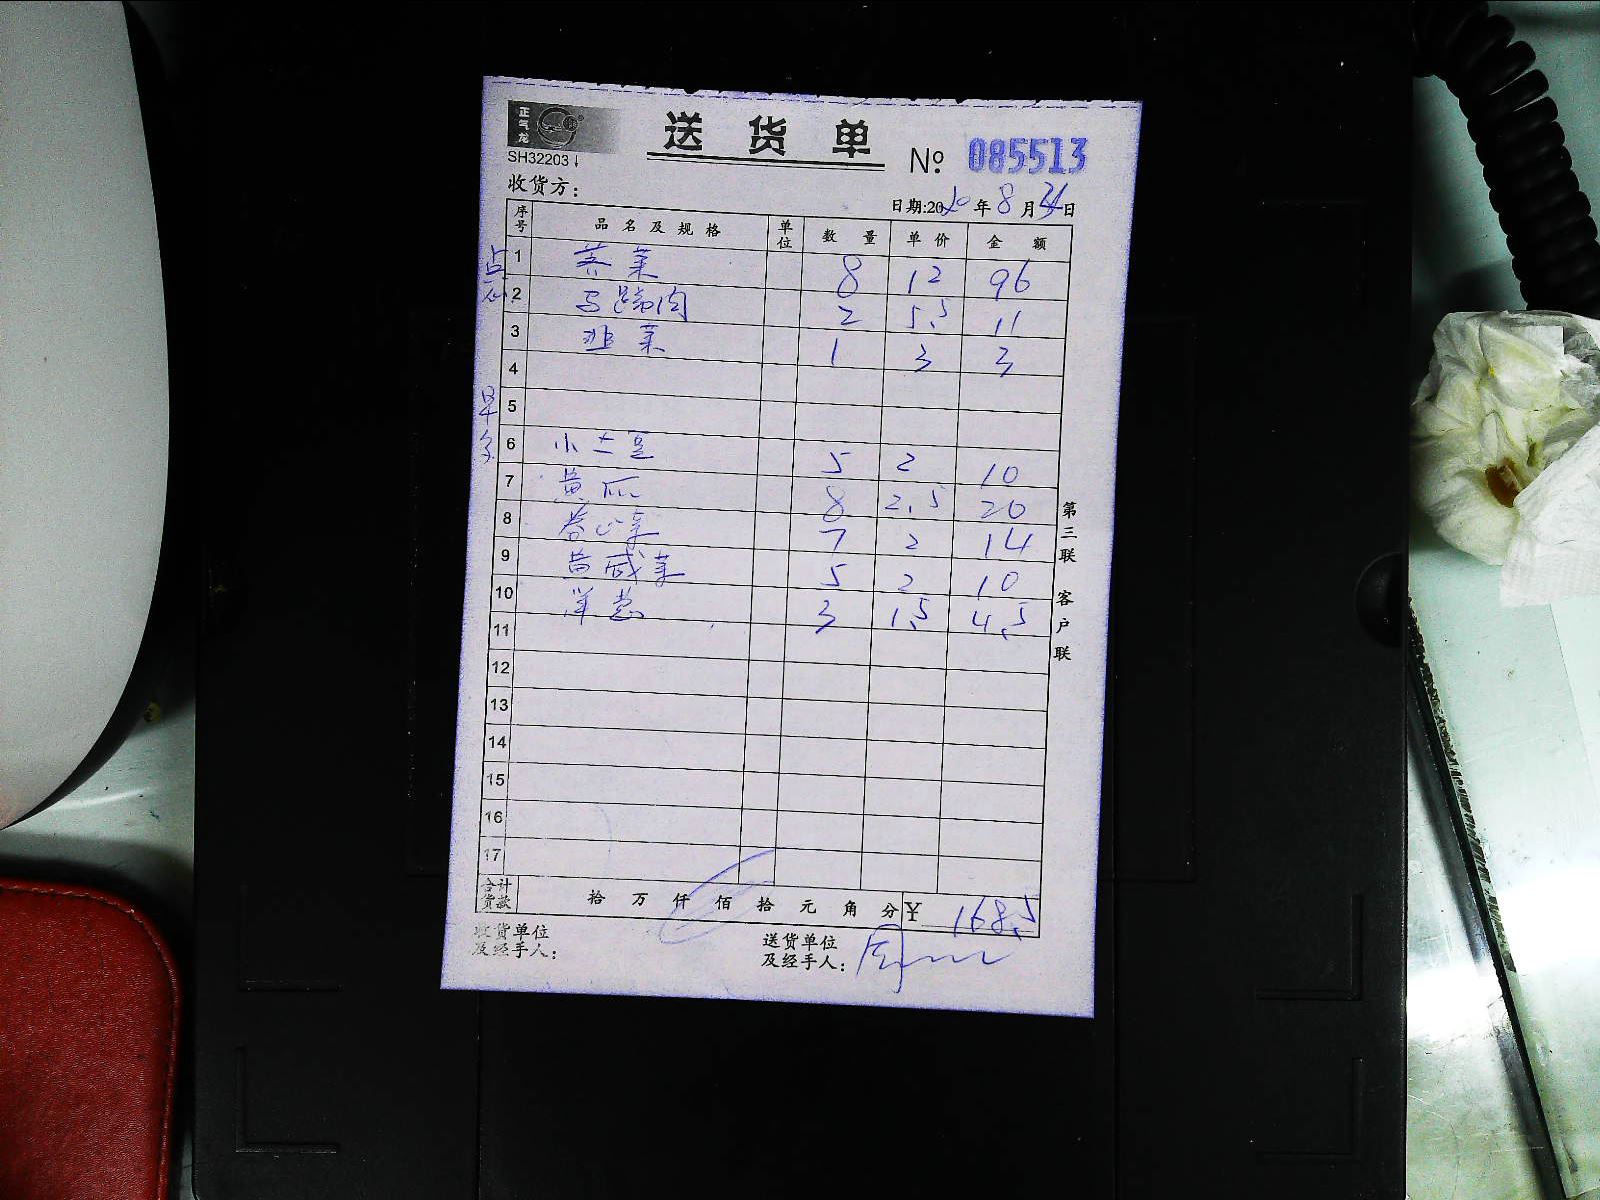 正气龙
SH32203↓
送货单
№ 085513
收货方：
日期:2020年8月日
序号 品名及规格 单位 数量 单价 金额
点心
1 荠菜 8 12 96
2 马蹄肉 2 5.5 11
3 韭菜 1 3 3
4
5
早餐
6 小土豆 5 2 10
7 黄瓜 8 2.5 20
8 卷心菜 7 2 14
9 黄咸菜 5 2 10
10 洋葱 3 1.5 4.5
11
12
13
14
15
16
17
合计货款 拾万仟佰拾元角分 ¥ 168.5
收货单位及经手人：
送货单位及经手人：周
第三联 客户联